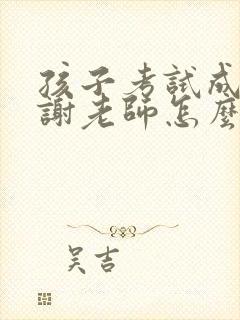 孩子考試成
謝老師怎麼
吳吉